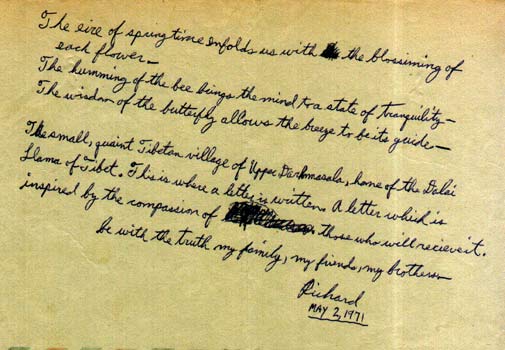 The eire of springtime enfolds us with the blossiming of
each flower—
The humming of the bee brings the mind to a state of tranquility—
The wisdom of the butterfly allows the breeze to be its guide—
The small, quaint Tibetan village of Upper Darhmasala, home of the Dalai
Llama of Tibet. This is where a letter is written. A letter which is
inspired by the compassion of those who will recieve it.
be with the truth my family, my friends, my brothers—
Richard
MAY 2, 1971